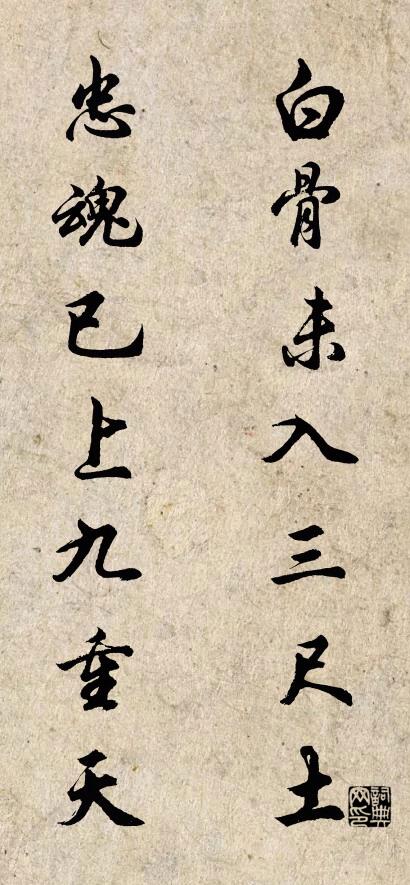 白骨未入三尺土
忠魂已上九重天
詞典网印